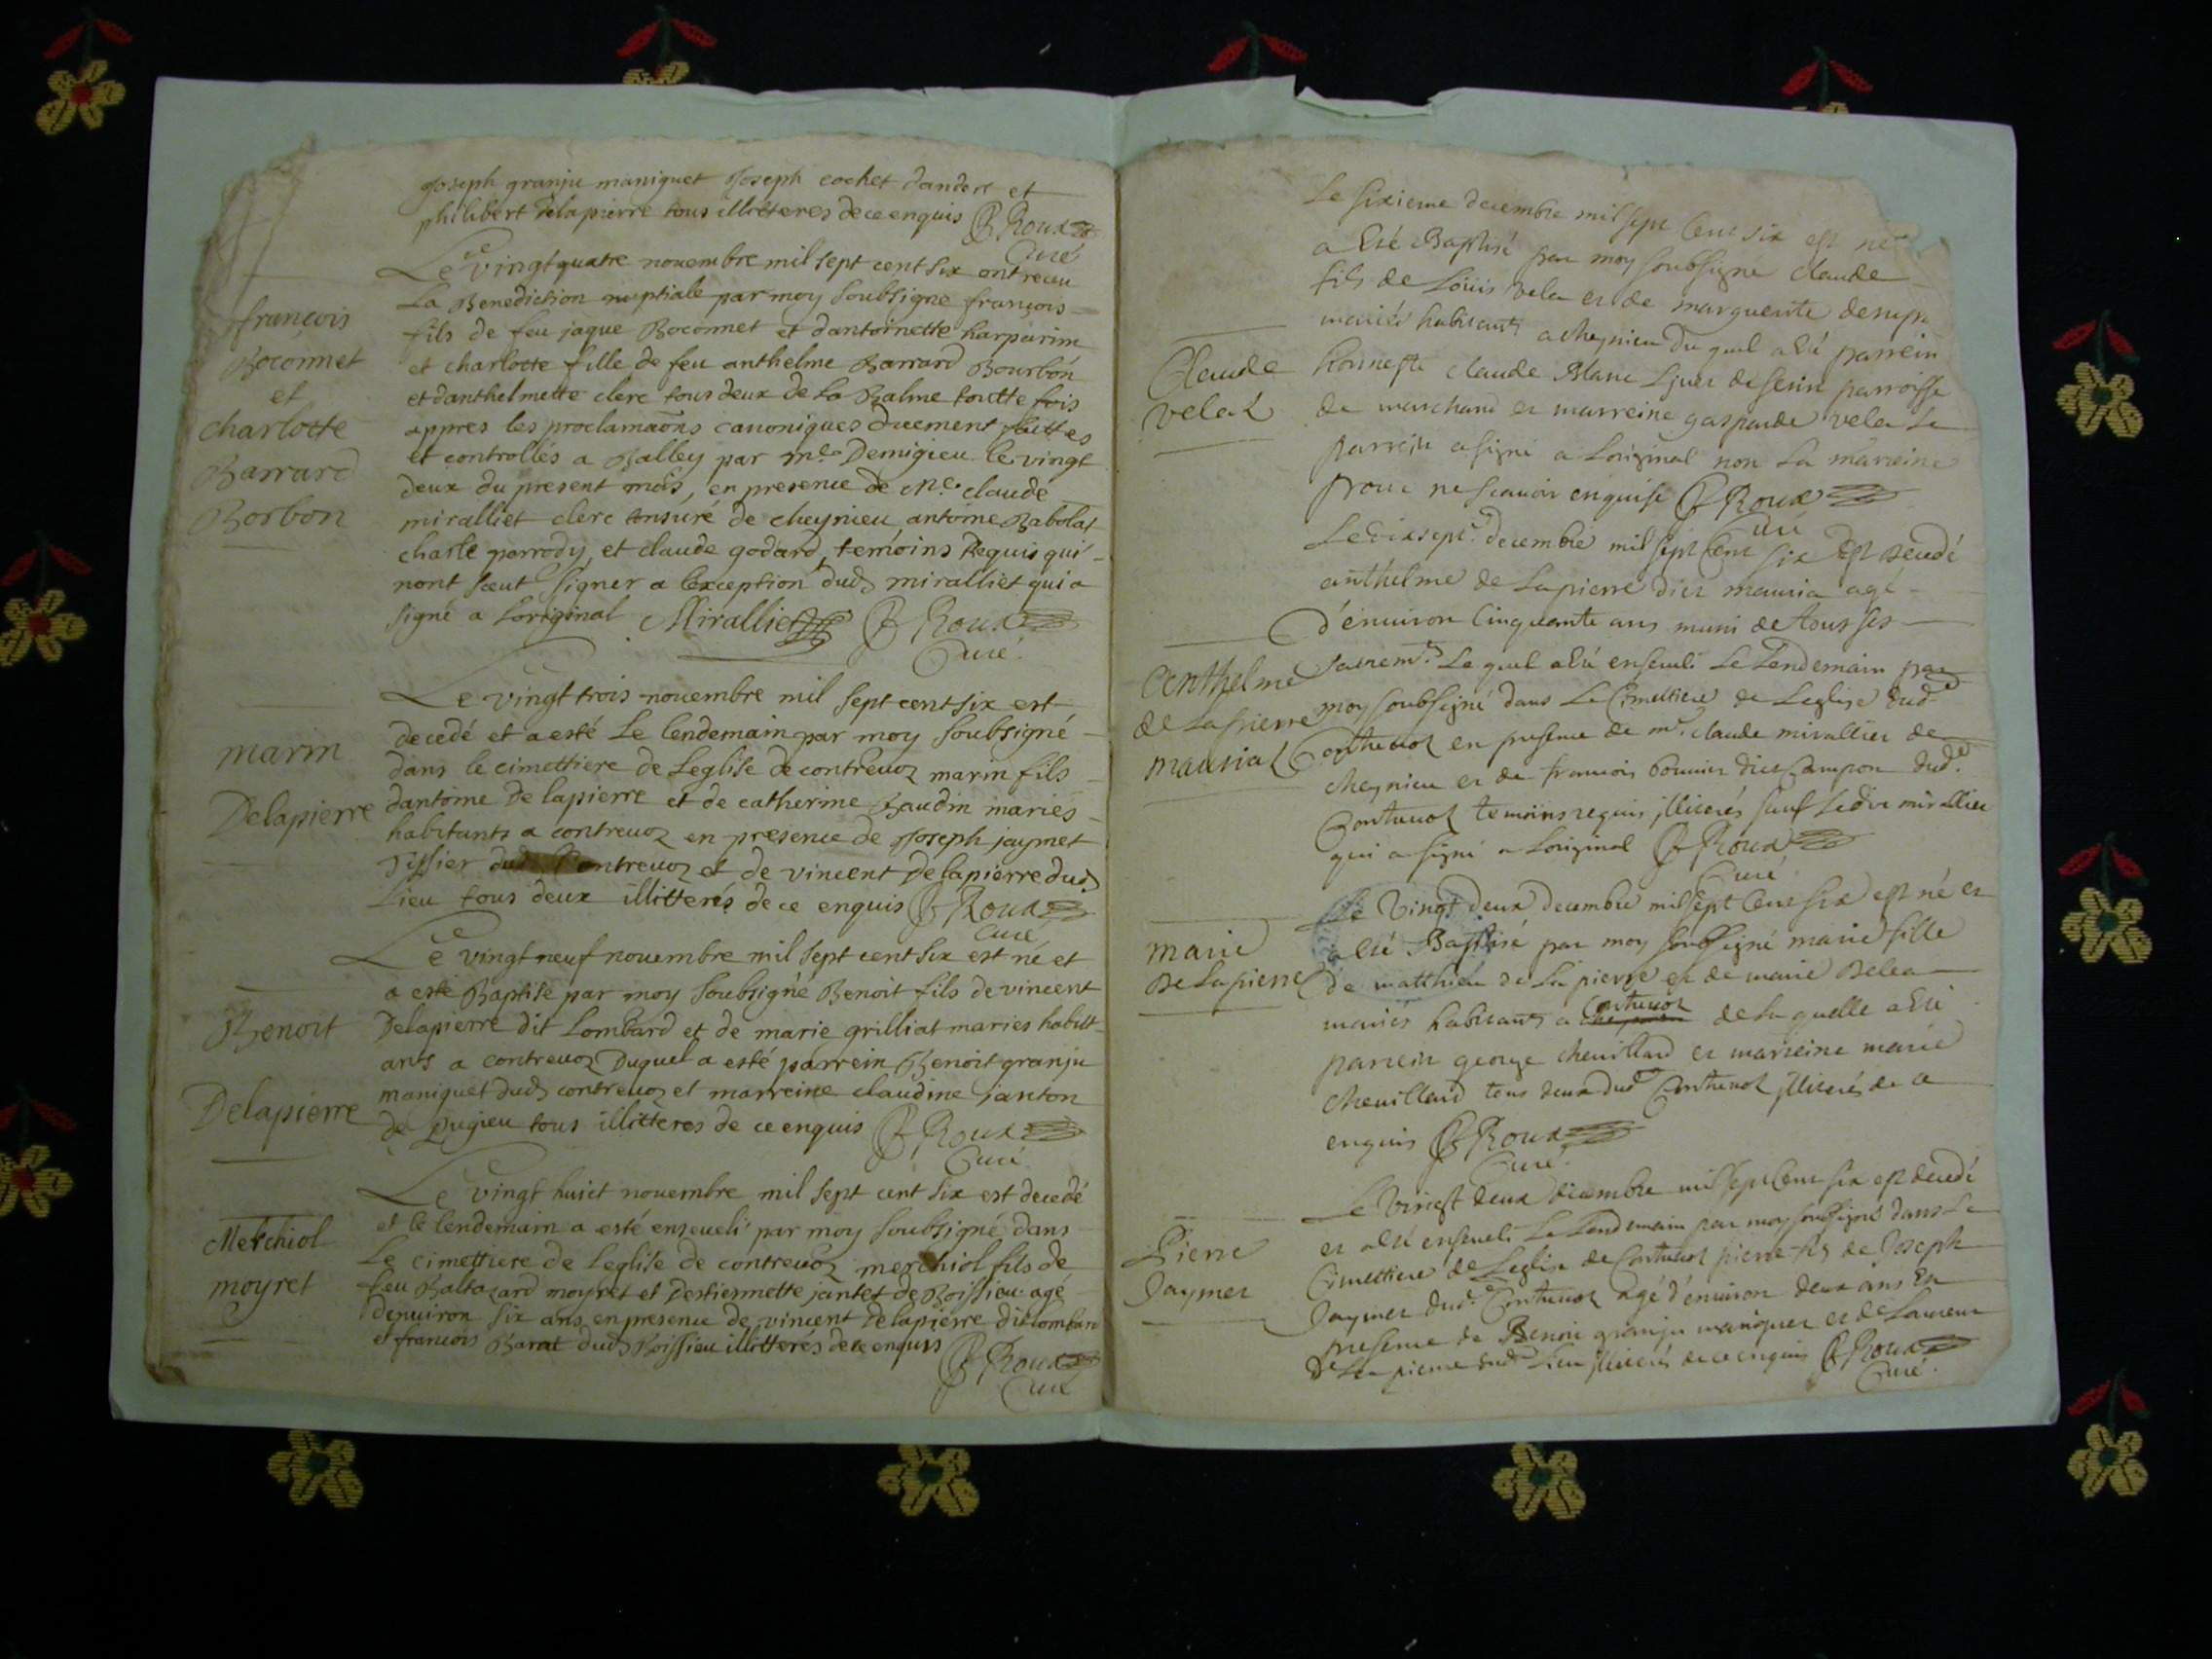 Joseph granju maniquet Joseph cochet dandert et
philibert Delapierre tous illitteres de ce enquis B Roux
Curé
Le vingt quatre nouembre mil sept cent six ont receu
La Benediction nuptiale par moy soubsigne françois
fils de feu jaque Boconnet et dantoinette harparin
et charlotte fille de feu anthelme Barrard Bourbon
et danthelmette clerc tous deux de la Balme toutte fois
appres les proclamaõns canoniques duement faittes
et controllés a Balley par mr. Demigieu le vingt
deux du present mois, en presence de Me. claude
miralliet clerc tonsuré de cheynieu antoine Babolat
charle perrody, et claude godard, temoins Requis qui
nont sceut signer a lexception dud miralliet qui a
signé a loriginal Miralliet B Roux
Curé
françois
Boconnet
et
charlotte
Barrard
Borbon
Le vingt trois nouembre mil sept cent six est
decedé et a esté Le lendemain par moy soubsigné
dans le cimettiere de Leglise de contreuoz marin fils
dantoine De lapierre et de catherine Baudin mariés
habitants a contreuoz en presence de Joseph jaymet
Tissier dud Contreuoz et de vincent Delapierre dud
Lieu tous deux illitterés de ce enquis B Roux
Curé
marin
Delapierre
Le vingt neuf nouembre mil sept cent six est né et
a esté Baptisé par moy soubsigné Benoit fils de vincent
Delapierre dit Lombard et de marie grilliat maries habitt-
ants a contreuoz Duquel a esté parrein Benoit granju
maniquet dud contreuoz et marreine claudine janton
de Pugieu tous illitteres de ce enquis B Roux
Curé
Benoit
Delapierre
Le vingt huict nouembre mil sept cent six est decedé
et le lendemain a esté enseueli par moy soubsigné dans
Le cimettiere de Leglise de contreuoz merchiol fils de
feu Baltazard moyret et destiennette jantet de Boissieu agé
denuiron six ans en presence de vincent Delapierre dit lombar
et francois Barrat dud Boissieu illitterés de ce enquis
B Roux
Curé
Merchiol
moyret
Le sixieme decembre mil sept Cent six est né
a esté Baptisé par moy soubsigné Claude
fils de Loüis vela et de marguerite
mariés habitants a cheynieu du quel a été parrein
honneste claude Blanc de serin parroisse
de marchand et marreine gasparde vela Le
parrein a signé a Loriginal non La marreine
pour ne scauoir enquise B Roux
Curé
Claude
velat
Le dix sept.e decembre mil sept Cent six Est decedé
anthelme de Lapierre dit mauria agé
d'enuiron Cinquante ans muni de tous ses
sacrem.ts Le quel a été enseueli Le Lendemain par
moy soubsigné dans Le Cimettiere de Leglise dud.
Contreuoz en presence de mr. claude mirallier de
cheynieu et de francois bonnier dit Campon dud.
Contreuoz temoins requis illiterés sauf Ledit mirallier
qui a signé a Loriginal B Roux
Curé
Anthelme
de Lapierre
mauriat
Le Vingt deux decembre mil sept Cent six est né et
a été Baptisé par moy soubsigné marie fille
de matthieu de La pierre et de marie Belea
mariés habitants a Contreuoz de La quelle a été
parrein george cheuillard et marreine marie
cheuillard tous deux dud Contreuoz illiterés de ce
enquis B Roux
Curé
marie
De Lapierre
Le Vingt deux decembre mil sept Cent six est decedé
et a été enseueli Le Lendemain par moy soubsigné dans Le
Cimettiere de Leglise de Contreuoz pierre fils de Joseph
Jaymet dud. Contreuoz agé d'enuiron deux ans En
presence de Benoit granju maniquet et de Laurent
De La pierre dud. Lieu illiterés de ce enquis B Roux
Curé
Pierre
Jaymet